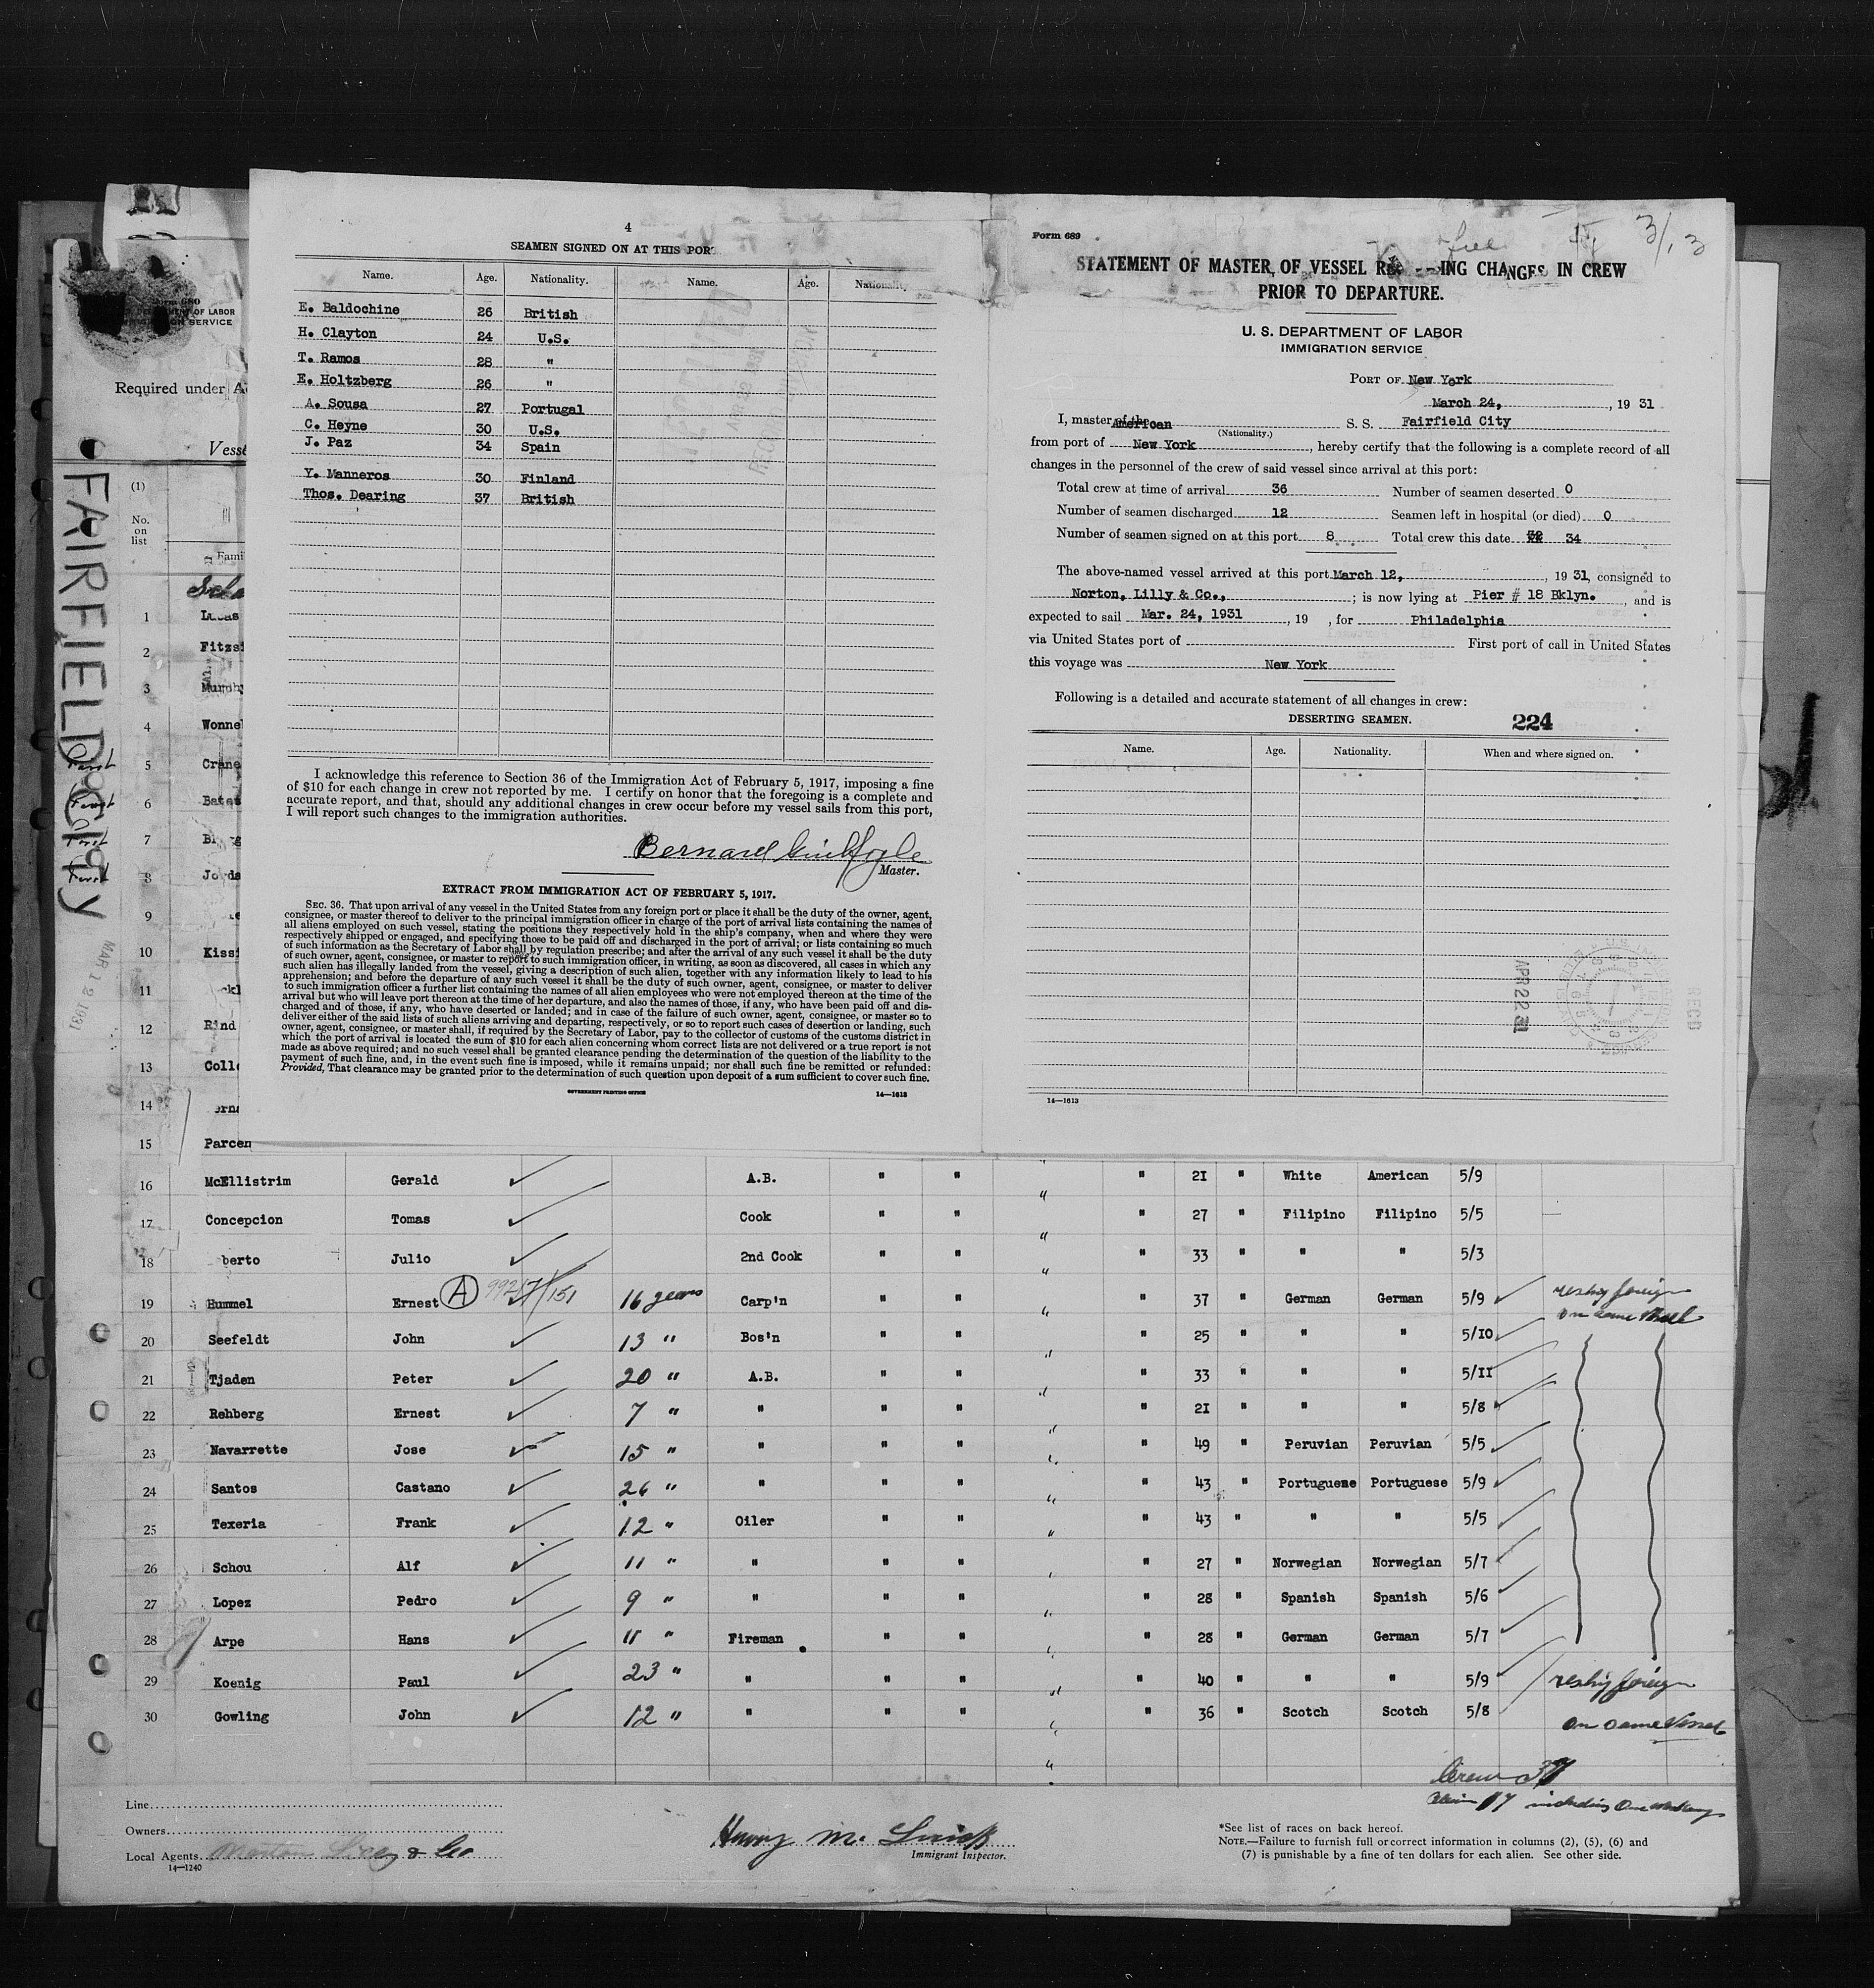 4
SEAMEN SIGNED ON AT THIS POR
Name. Age. Nationality. Name. Age. Nationality.
E. Baldochine 26 British
H. Clayton 24 U.S.
T. Ramos 28 "
E. Holtzberg 26 "
A. Sousa 27 Portugal
C. Heyne 30 U.S.
J. Paz 34 Spain
Y. Manneros 30 Finland
Thos. Dearing 37 British
I acknowledge this reference to Section 36 of the Immigration Act of February 5, 1917, imposing a fine
of $10 for each change in crew not reported by me. I certify on honor that the foregoing is a complete and
accurate report, and that, should any additional changes in crew occur before my vessel sails from this port,
I will report such changes to the immigration authorities.
Bernard
Master.
EXTRACT FROM IMMIGRATION ACT OF FEBRUARY 5, 1917.
SEC. 36. That upon arrival of any vessel in the United States from any foreign port or place it shall be the duty of the owner, agent,
consignee, or master thereof to deliver to the principal immigration officer in charge of the port of arrival lists containing the names of
all aliens employed on such vessel, stating the positions they respectively hold in the ship's company, when and where they were
respectively shipped or engaged, and specifying those to be paid off and discharged in the port of arrival; or lists containing so much
of such information as the Secretary of Labor shall by regulation prescribe; and after the arrival of any such vessel it shall be the duty
of such owner, agent, consignee, or master to report to such immigration officer, in writing, as soon as discovered, all cases in which any
such alien has illegally landed from the vessel, giving a description of such alien, together with any information likely to lead to his
apprehension; and before the departure of any such vessel it shall be the duty of such owner, agent, consignee, or master to deliver
to such immigration officer a further list containing the names of all alien employees who were not employed thereon at the time of the
arrival but who will leave port thereon at the time of her departure, and also the names of those, if any, who have been paid off and dis-
charged and of those, if any, who have deserted or landed; and in case of the failure of such owner, agent, consignee, or master so to
deliver either of the said lists of such aliens arriving and departing, respectively, or so to report such cases of desertion or landing, such
owner, agent, consignee, or master shall, if required by the Secretary of Labor, pay to the collector of customs of the customs district in
which the port of arrival is located the sum of $10 for each alien concerning whom correct lists are not delivered or a true report is not
made as above required; and no such vessel shall be granted clearance pending the determination of the question of the liability to the
payment of such fine, and, in the event such fine is imposed, while it remains unpaid; nor shall such fine be remitted or refunded:
Provided, That clearance may be granted prior to the determination of such question upon deposit of a sum sufficient to cover such fine.
GOVERNMENT PRINTING OFFICE 14—1613
Form 689
3/13
STATEMENT OF MASTER OF VESSEL RE ING CHANGES IN CREW
PRIOR TO DEPARTURE.
U. S. DEPARTMENT OF LABOR
IMMIGRATION SERVICE
PORT OF New York
March 24, , 19 31
I, master of the American S. S. Fairfield City
(Nationality.)
from port of New York , hereby certify that the following is a complete record of all
changes in the personnel of the crew of said vessel since arrival at this port:
Total crew at time of arrival 36 Number of seamen deserted 0
Number of seamen discharged 12 Seamen left in hospital (or died) 0
Number of seamen signed on at this port 8 Total crew this date 34
The above-named vessel arrived at this port March 12, , 19 31, consigned to
Norton, Lilly & Co., ; is now lying at Pier # 18 Bklyn. , and is
expected to sail Mar. 24, 1931 , 19 , for Philadelphia
via United States port of First port of call in United States
this voyage was New York
Following is a detailed and accurate statement of all changes in crew:
DESERTING SEAMEN. 224
Name. Age. Nationality. When and where signed on.
APR 22 31
RECD
14—1613
Form 680
Required under A
Vess
FAIRFIELD City
MAR 12 1931
(1)
No.
on
list
Fami
1 Lucas
2 Fitzsi
3 Murphy
4 Wonne
First 5 Crane
First 6 Bates
First 7
First 8 Jorda
9
10 Kissi
11
12 Rind
13 Coll
14
15 Parcen
16 McEllistrim Gerald A.B. " " " " 21 " White American 5/9
17 Concepcion Tomas Cook " " " " 27 " Filipino Filipino 5/5
18 berto Julio 2nd Cook " " " " 33 " " " 5/3
19 Hummel Ernest A 16 years Carp'n " " " " 37 " German German 5/9 reship foreign
on same vessel
20 Seefeldt John 13 " Bos'n " " " " 25 " " " 5/10
21 Tjaden Peter 20 " A.B. " " " " 33 " " " 5/11
22 Rehberg Ernest 7 " " " " " " 21 " " " 5/8
23 Navarrette Jose 15 " " " " " " 49 " Peruvian Peruvian 5/5
24 Santos Castano 26 " " " " " " 43 " Portuguese Portuguese 5/9
25 Texeria Frank 12 " Oiler " " " " 43 " " " 5/5
26 Schou Alf 11 " " " " " " 27 " Norwegian Norwegian 5/7
27 Lopez Pedro 9 " " " " " " 28 " Spanish Spanish 5/6
28 Arpe Hans 11 " Fireman " " " " 28 " German German 5/7
29 Koenig Paul 23 " " " " " " 40 " " " 5/9 reship foreign
30 Gowling John 12 " " " " " " 36 " Scotch Scotch 5/8 on same vessel
Crew 37
17 including One workaway
Line
Owners
Local Agents Norton Lilly & Co
14—1240
Harry M.
Immigrant Inspector.
*See list of races on back hereof.
NOTE.—Failure to furnish full or correct information in columns (2), (5), (6) and
(7) is punishable by a fine of ten dollars for each alien. See other side.